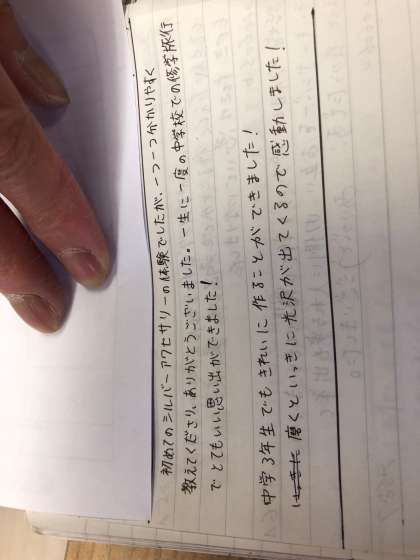 初めてのシルバーアクセサリーの体験でしたが、一つ一つ分かりやすく
教えてくださり、ありがとうございました。一生に一度の中学校での修学旅行
で とてもいい思い出ができました！
中学3年生でもきれいに作ることができました！
磨くといっきに光沢が出てくるので感動しました！